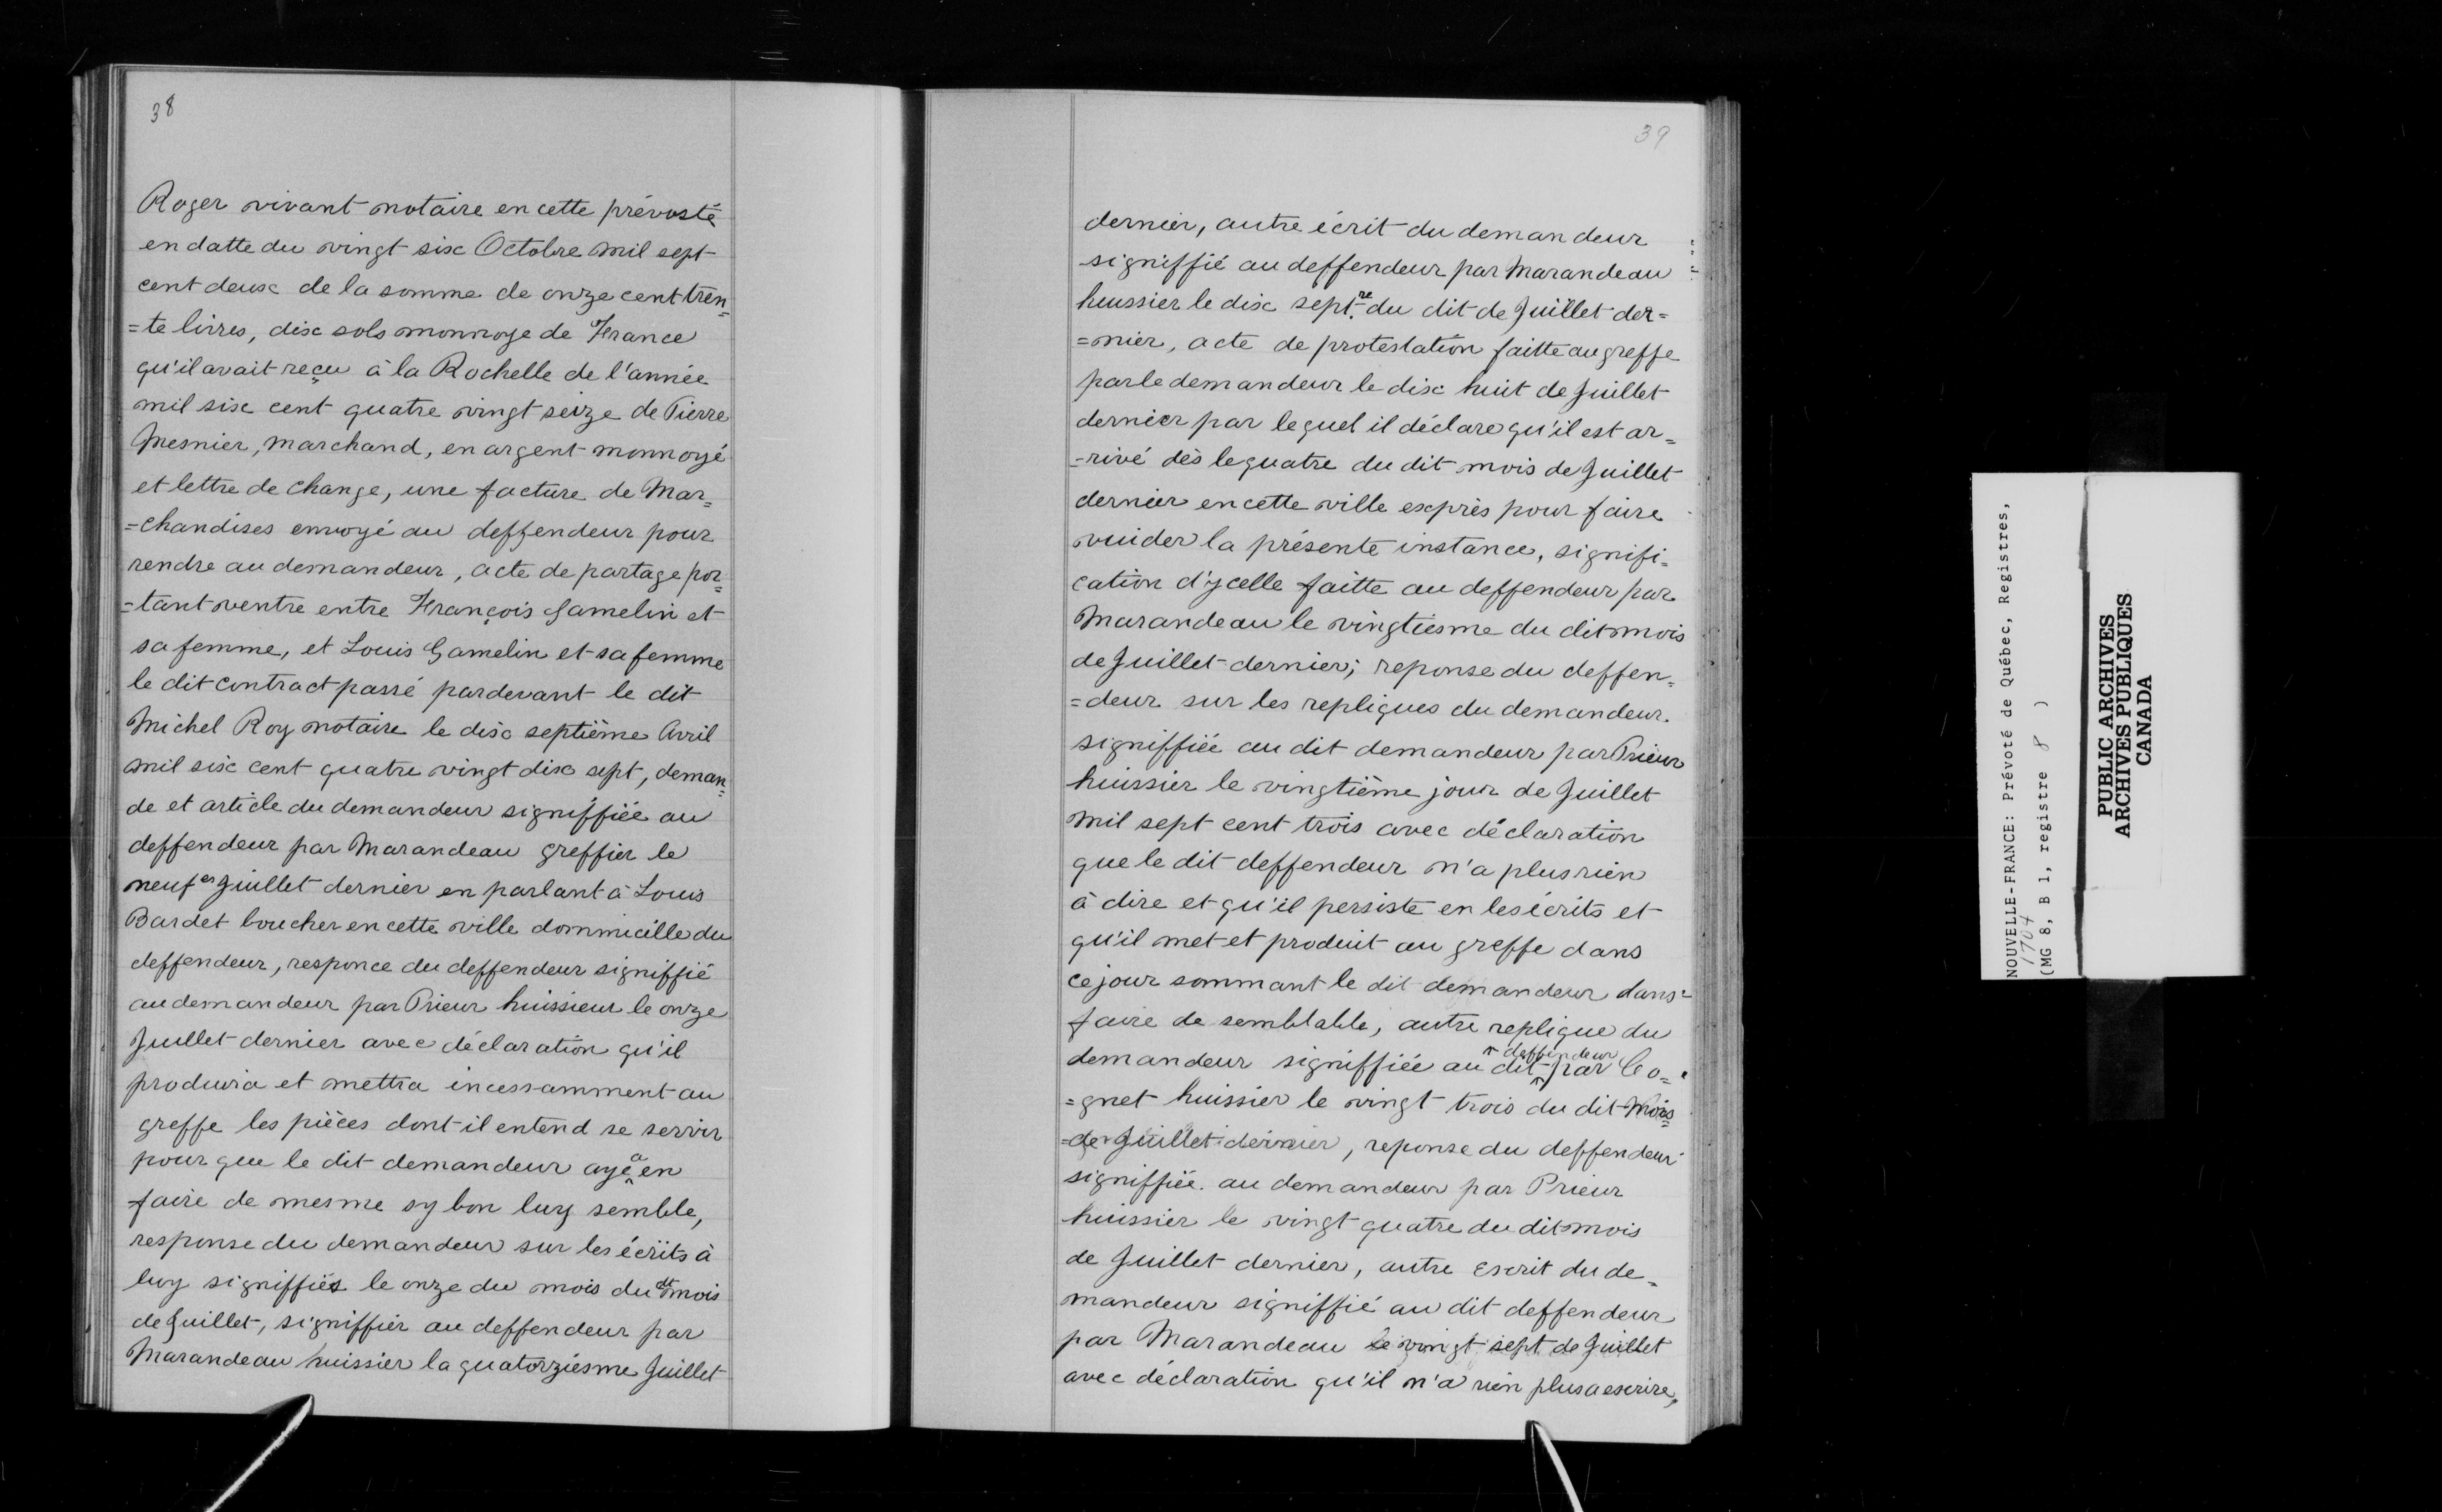 38
Roger vivant notaire en cette prévosté
en datte du vingt six Octobre mil sept
cent deux de la somme de onze cent tren=
=te livres, dix sols monnoye de France
qu'il avait reçu à la Rochelle de l'année
mil six cent quatre vingt seize de Pierre
Mesnier, marchand, en argent monnoyé
et lettre de change, une facture de Mar=
=chandises envoyé au deffendeur pour
rendre au demandeur, acte de partage por=
=tant ventre entre François Gamelin et
sa femme, et Louis Gamelin et sa femme
le dit contract passé pardevant le dit
Michel Roy notaire le dix septième Avril
mil six cent quatre vingt dix sept, deman=
de et article du demandeur signiffiée au
deffendeur par Marandeau greffier le
neuf es Juillet dernier en parlant à Louis
Bardet boucher en cette ville dommicille du
deffendeur, responce du deffendeur signiffié
au demandeur par Prieur huissieur le onze
Juillet dernier avec déclaration qu'il
produira et mettra incessamment au
greffe les pièces dont il entend se servir
pour que le dit demandeur aye a en
faire de mesme sy bon luy semble,
response du demandeur sur les écrits à
luy signiffiés le onze du mois du dt mois
de Juillet, signiffier au deffendeur par
Marandeau huissier la quatorziésme Juillet
39
dernier, autre écrit du demandeur
signiffié au deffendeur par Marandeau
huissier le dix sept.re du dit de Juillet der=
=nier, acte de protestation faitte au greffe
par le demandeur le dix huit de Juillet
dernier par lequel il déclare qu'il est ar=
=rivé dès le quatre du dit mois de Juillet
dernier en cette ville exprès pour faire
vuider la présente instance, signifi=
cation d'ycelle faitte au deffendeur par
Marandeau le vingtiesme du dit mois
de Juillet dernier; reponse du deffen=
=deur sur les repliques du demandeur
signiffiée au dit demandeur par Prieur
huissier le vingtième jour de Juillet
mil sept cent trois avec déclaration
que le dit deffendeur n'a plus rien
à dire et qu'il persiste en les écrits et
qu'il met et produit au greffe dans
ce jour sommant le dit demandeur dans
faire de semblable, autre replique du
demandeur signiffiée au dit deffendeur par Co=
=gnet huissier le vingt trois du dit Mois
=de Juillet dernier, reponse du deffendeur
signiffiée au demandeur par Prieur
huissier le vingt quatre du dit mois
de Juillet dernier, autre escrit du de=
mandeur signiffié au dit deffendeur
par Marandeau le vingt sept de Juillet
avec déclaration qu'il n'a rien plus a escrire,
NOUVELLE-FRANCE: Prévoté de Québec, Registres,
1704
(MG 8, B 1, registre 8 )
PUBLIC ARCHIVES
ARCHIVES PUBLIQUES
CANADA